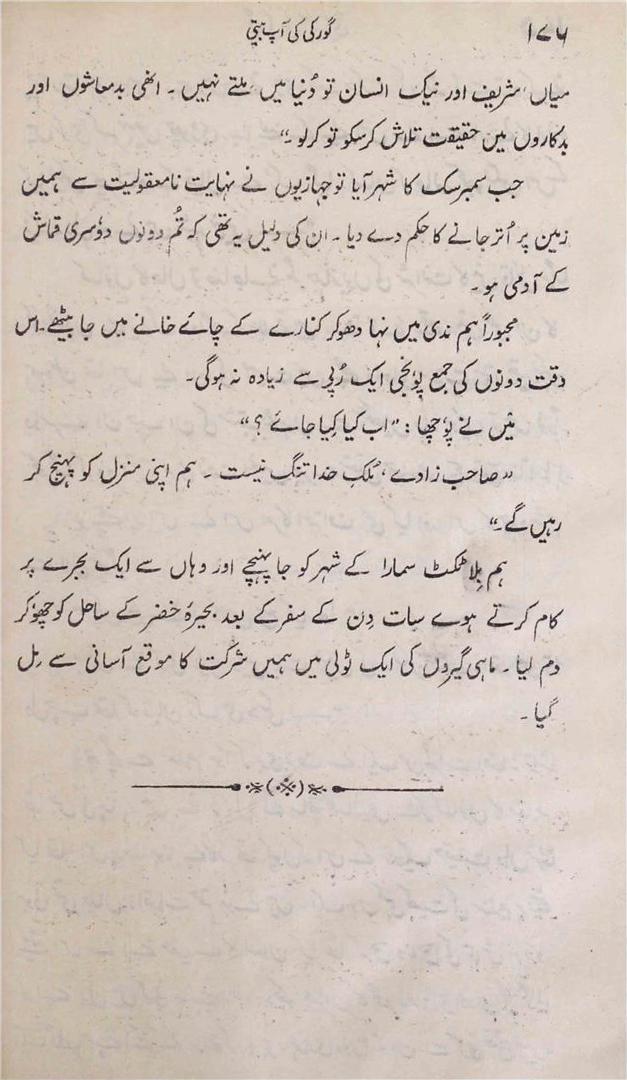 ۱۷۶ گورکی کی آپ بیتی
میاں، شریف اور نیک انسان تو دُنیا میں مِلتے نہیں ۔ انھی بدمعاشوں اور
بدکاروں میں حقیقت تلاش کرسکو تو کرلو ۔“
جب سمبرسک کا شہر آیا تو جہازیوں نے نہایت نامعقولیت سے ہمیں
زمین پر اُتر جانے کا حکم دے دیا ۔ ان کی دلیل یہ تھی کہ تُم دونوں دوٗسری قماش
کے آدمی ہو ۔
مجبوراً ہم ندی میں نہا دھو کر کنارے کے چائے خانے میں جا بیٹھے ۔ اس
وقت دونوں کی جمع پوٗنجی ایک رُپی سے زیادہ نہ ہوگی۔
میں نے پوٗچھا : ”اب کیا کِیا جائے ؟“
”صاحب زادے، مُلکِ خدا تنگ نیست ۔ ہم اپنی منزل کو پہنچ کر
رہیں گے ۔“
ہم بِلا ٹکٹ سمارا کے شہر کو جا پہنچے اور وہاں سے ایک بجرے پر
کام کرتے ہوے سات دِن کے سفر کے بعد بحیرۂ خضر کے ساحل کو چھوٗکر
دم لیا ۔ ماہی گیروں کی ایک ٹولی میں ہمیں شرکت کا موقع آسانی سے مِل
گیا ۔